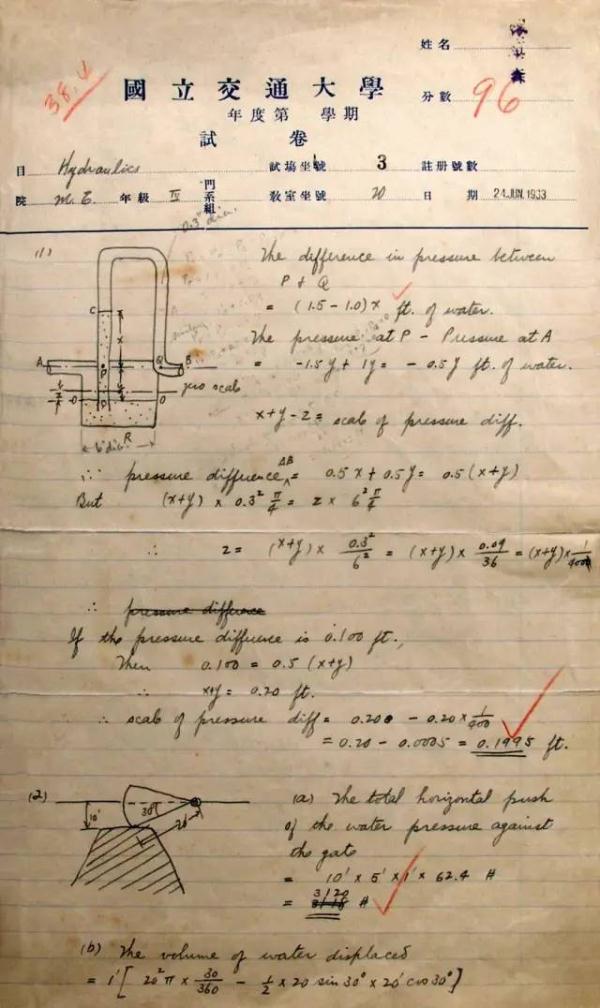 姓名
森
38.4
國立交通大學
分數 96
年度第 學期
試 卷
目 Hydraulics 試場坐號 3 註册號數
院 M.E. 年級 IV 門系組 教室坐號 20 日期 24 JUN 1933
0.3" dia.
(1) The difference in pressure between
P & Q
= (1.5 - 1.0)x ft. of water.
The pressure at P - Pressure at A
= -1.5y + 1y = -0.5y ft. of water.
C
x
A P Q B
y
zero scale
z O O
D
R
6" dia.
x+y-z = scale of pressure diff.
∴ pressure difference AB = 0.5x + 0.5y = 0.5(x+y)
But (x+y) × 0.3² π/4 = z × 6² π/4
∴ z = (x+y) × 0.3²/6² = (x+y) × 0.09/36 = (x+y) × 1/400
∴ pressure difference
If the pressure difference is 0.100 ft.,
Then 0.100 = 0.5 (x+y)
∴ x+y = 0.20 ft.
∴ scale of pressure diff = 0.200 - 0.20 × 1/400
= 0.20 - 0.0005 = 0.1995 ft.
(2)
10'
30°
20'
(a) The total horizontal push
of the water pressure against
the gate
= 10' × 5' × 1' × 62.4 #
= 3120 #
(b) The volume of water displaced
= 1' [ 20² π × 30/360 - 1/2 × 20 sin 30° × 20' cos 30° ]